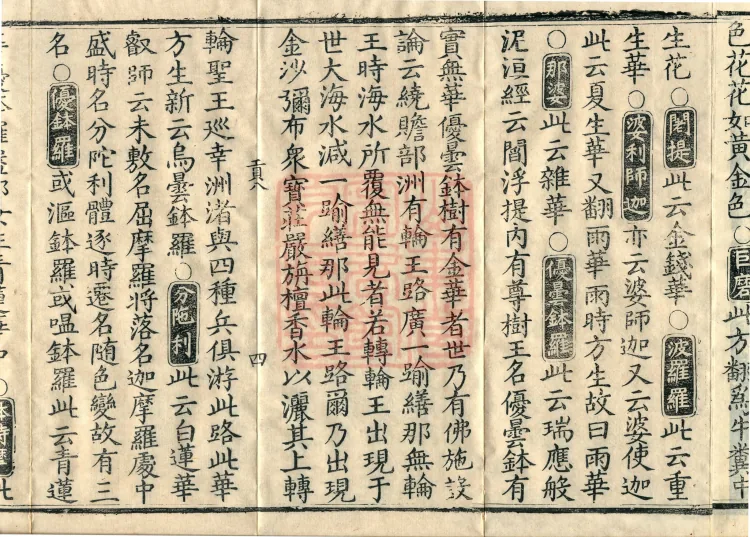 色花花如黃金色○巨磨此方翻爲牛糞中
生花○闍提此云金錢華○波羅羅此云重
生華○婆利師迦亦云婆師迦又云婆使迦
此云夏生華又翻雨華雨時方生故曰雨華
○那婆此云雜華○優曇鉢羅此云瑞應般
泥洹經云閻浮提內有尊樹王名優曇鉢有
實無華優曇鉢樹有金華者世乃有佛施設
論云繞贍部洲有輪王路廣一踰繕那無輪
王時海水所覆無能見者若轉輪王出現于
世大海水減一踰繕那此輪王路爾乃出現
金沙彌布衆寶莊嚴旃檀香水以灑其上轉
貢八 四
輪聖王巡幸洲渚與四種兵俱游此路此華
方生新云烏曇鉢羅○分陁利此云白蓮華
叡師云未敷名屈摩羅將落名迦摩羅處中
盛時名分陀利體逐時遷名随色變故有三
名○優鉢羅或漚鉢羅或嗢鉢羅此云青蓮